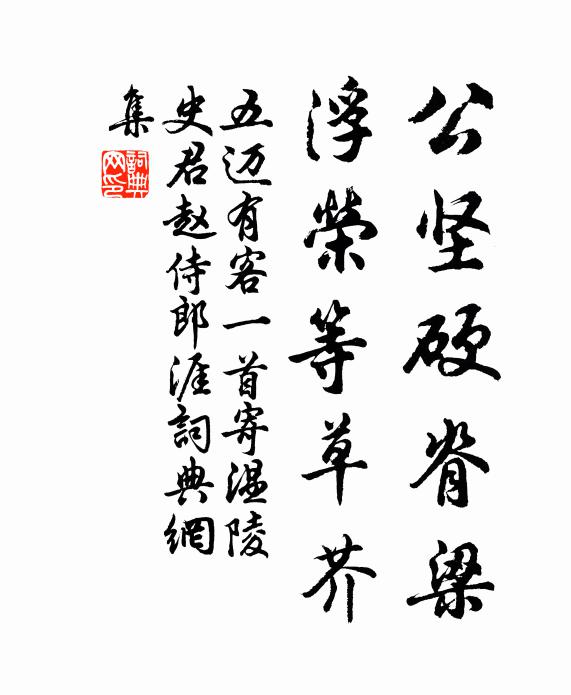 公坚硬脊梁
浮榮等草芥
五迈有客一首寄温陵
史君赵侍郎涯詞典網
集
詞典网印